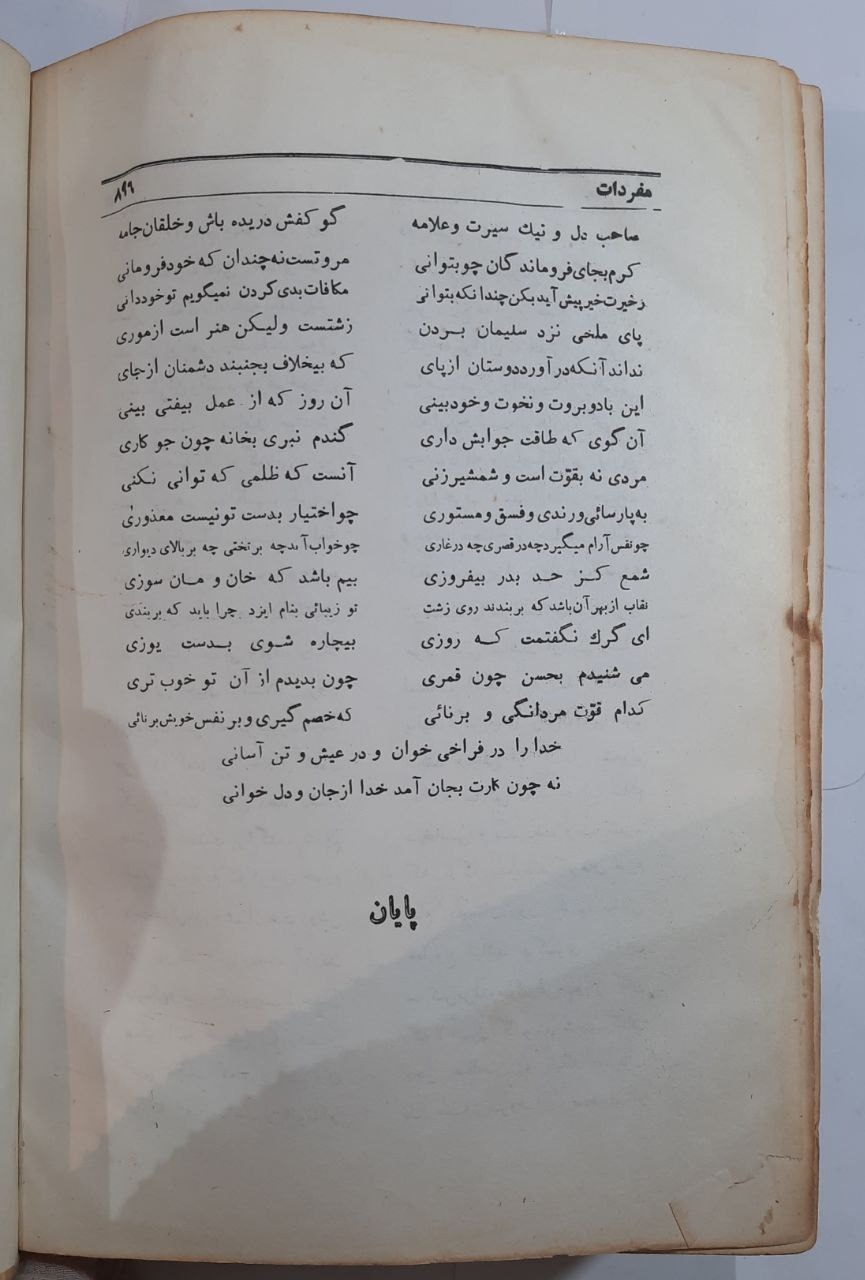 مفردات ۸۹۶
صاحب دل و نیك سیرت وعلامه گو کفش دریده باش وخلقان‌جامه
کرم‌بجای‌فروماندگان چوبتوانی مروتست‌نه‌چندان که خودفرومانی
زخیرت‌خیرپیش‌آیدبکن‌چندانکه‌بتوانی مکافات‌بدی‌کردن نمیگویم توخوددانی
پای ملخی نزد سلیمان بردن زشتست ولیکن هنر است ازموری
نداندآنکه‌درآورددوستان ازپای که بیخلاف بجنبند دشمنان ازجای
این بادوبروت ونخوت وخودبینی آن روز که از عمل بیفتی بینی
آن گوی که طاقت جوابش داری گندم نبری بخانه چون جو کاری
مردی نه بقوّت است و شمشیرزنی آنست که ظلمی که توانی نکنی
به‌پارسائی‌ورندی‌وفسق‌ومستوری چواختیار بدست تونیست معذوری
چونفس‌آرام میگیردچه‌درقصری‌چه‌درغاری چوخواب‌آیدچه برتختی چه بربالای دیواری
شمع کز حد بدر بیفروزی بیم باشد که خان و مان سوزی
نقاب ازبهرآن‌باشدکه بربندند روی زشت تو زیبائی بنام ایزد چرا باید که بربندی
ای گرك نگفتمت که روزی بیچاره شوی بدست یوزی
می شنیدم بحسن چون قمری چون بدیدم از آن تو خوب تری
کدام قوّت مردانگی و برنائی که‌خصم گیری‌وبر نفس‌خویش‌برنائی
خدا را در فراخی خوان و در عیش و تن آسانی
نه چون کارت بجان آمد خدا ازجان ودل خوانی
پایان